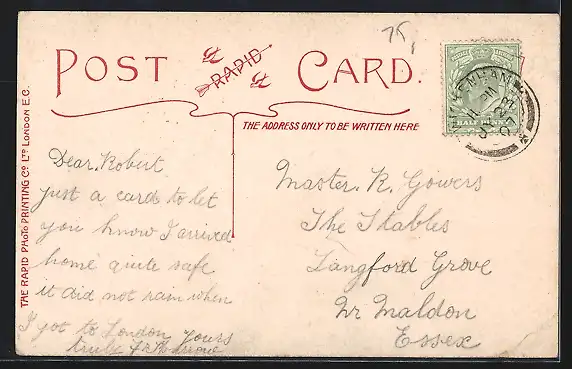 POST CARD.
RAPID
THE ADDRESS ONLY TO BE WRITTEN HERE
THE RAPID PHOTO PRINTING Co LTD LONDON E.C.
HALF PENNY
Dear Robert
just a card to let
you know I arrived
home quite safe
it did not rain when
I got to London yours
truly
Master. R. Gowers
The Stables
Langford Grove
Nr Maldon
Essex